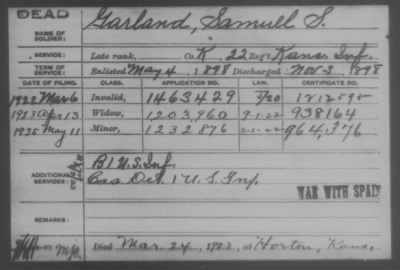 DEAD
NAME OF SOLDIER: Garland, Samuel S.
SERVICE: Late rank, Co. K, 22 Reg't Kans. Inf.
TERM OF SERVICE: Enlisted May 4, 1898 Discharged Nov. 2, 1898
DATE OF FILING. CLASS. APPLICATION NO. LAW. CERTIFICATE NO.
1922 Mar 6 Invalid, 1463429
1923 Apr 13 Widow, 1203,960 9-1-22 938164
1925 May 11 Minor, 1232876
ADDITIONAL SERVICES: B 1 U.S. Inf.
Det. 1 U.S. Inf.
WAR WITH SPAIN
REMARKS:
Died Mar. 24, 1923, at Horton, Kans.